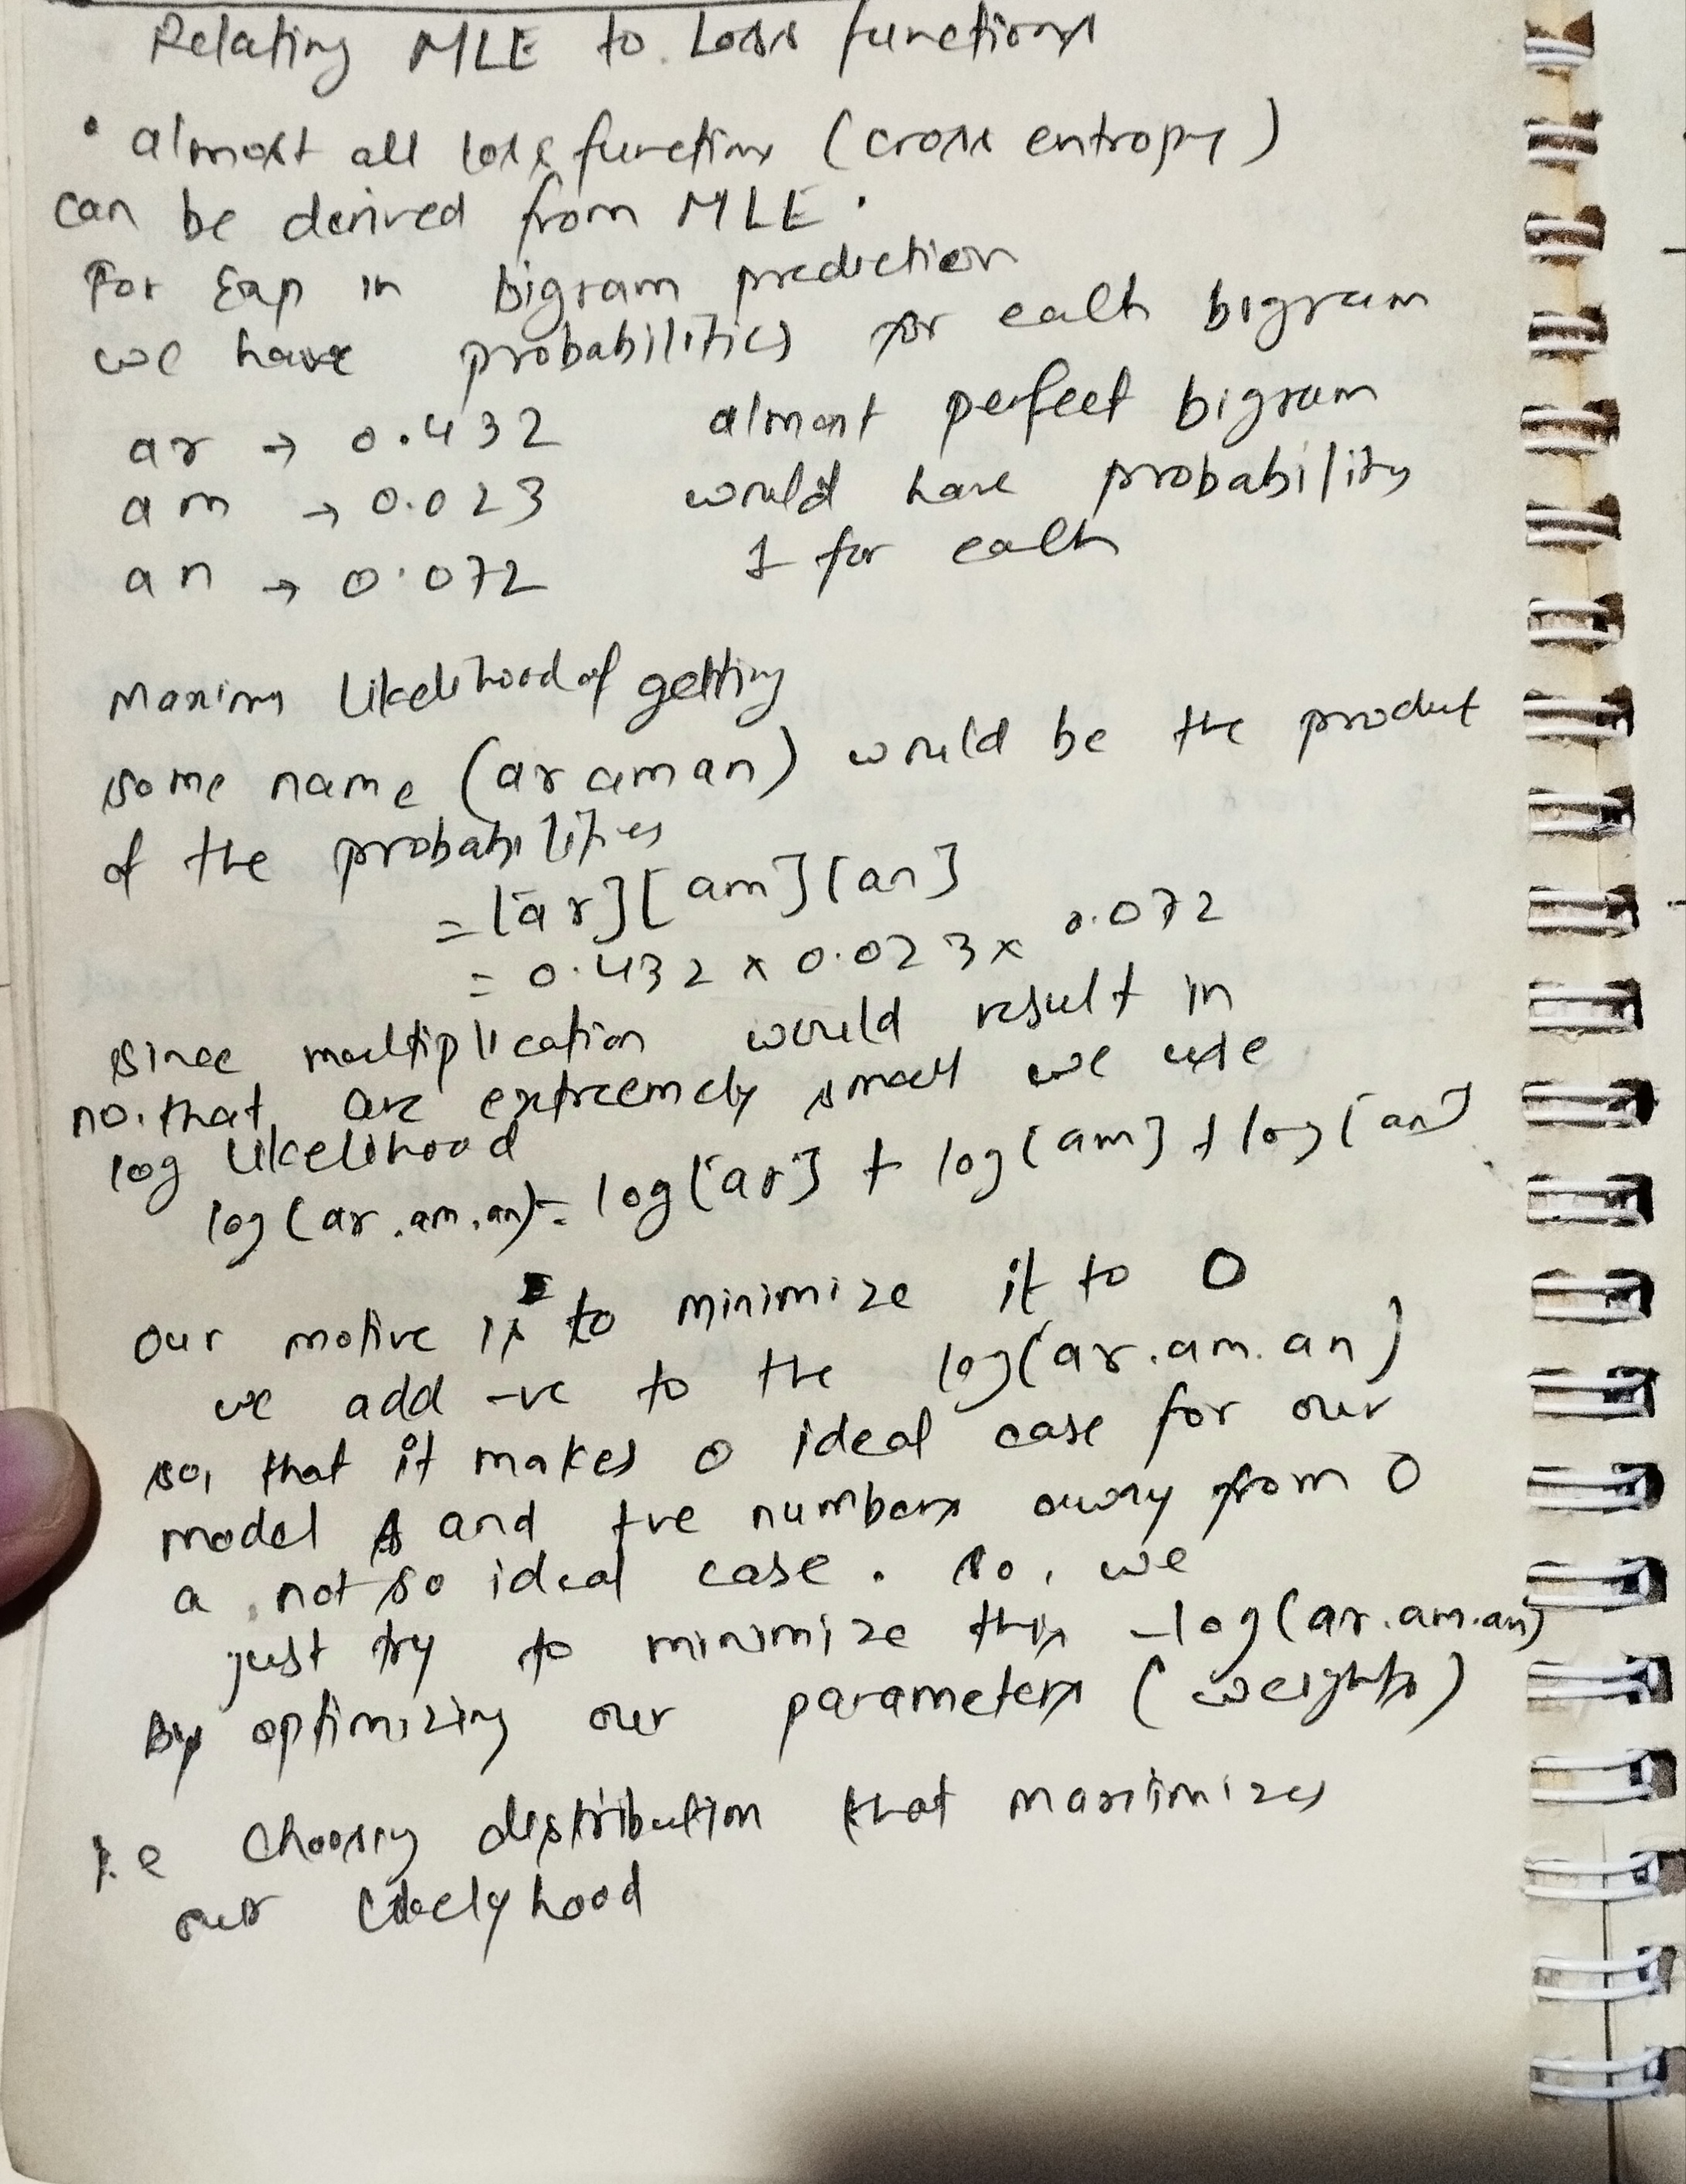 Relating MLE to Loss functions
• almost all loss functions (cross entropy)
can be derived from MLE.
For Exp in bigram prediction
we have probabilities for each bigram
ar → 0.432 almost perfect bigram
am → 0.023 would have probability
an → 0.072 1 for each
Maxim Likelihood of getting
some name (ar am an) would be the product
of the probabilities
= [ar][am][an]
= 0.432 x 0.023 x 0.072
since multiplication would result in
no. that are extreemely small we use
log Likelihood
log(ar.am.an) = log[ar] + log[am] + log[an]
our motive is to minimize it to 0
we add -ve to the log(ar.am.an)
so, that it makes 0 ideal case for our
model and +ve numbers away from 0
a not so ideal case. so, we
just try to minimize this -log(ar.am.an)
By optimizing our parameters (weights)
i.e choosing distribution that maximizes
our likelyhood